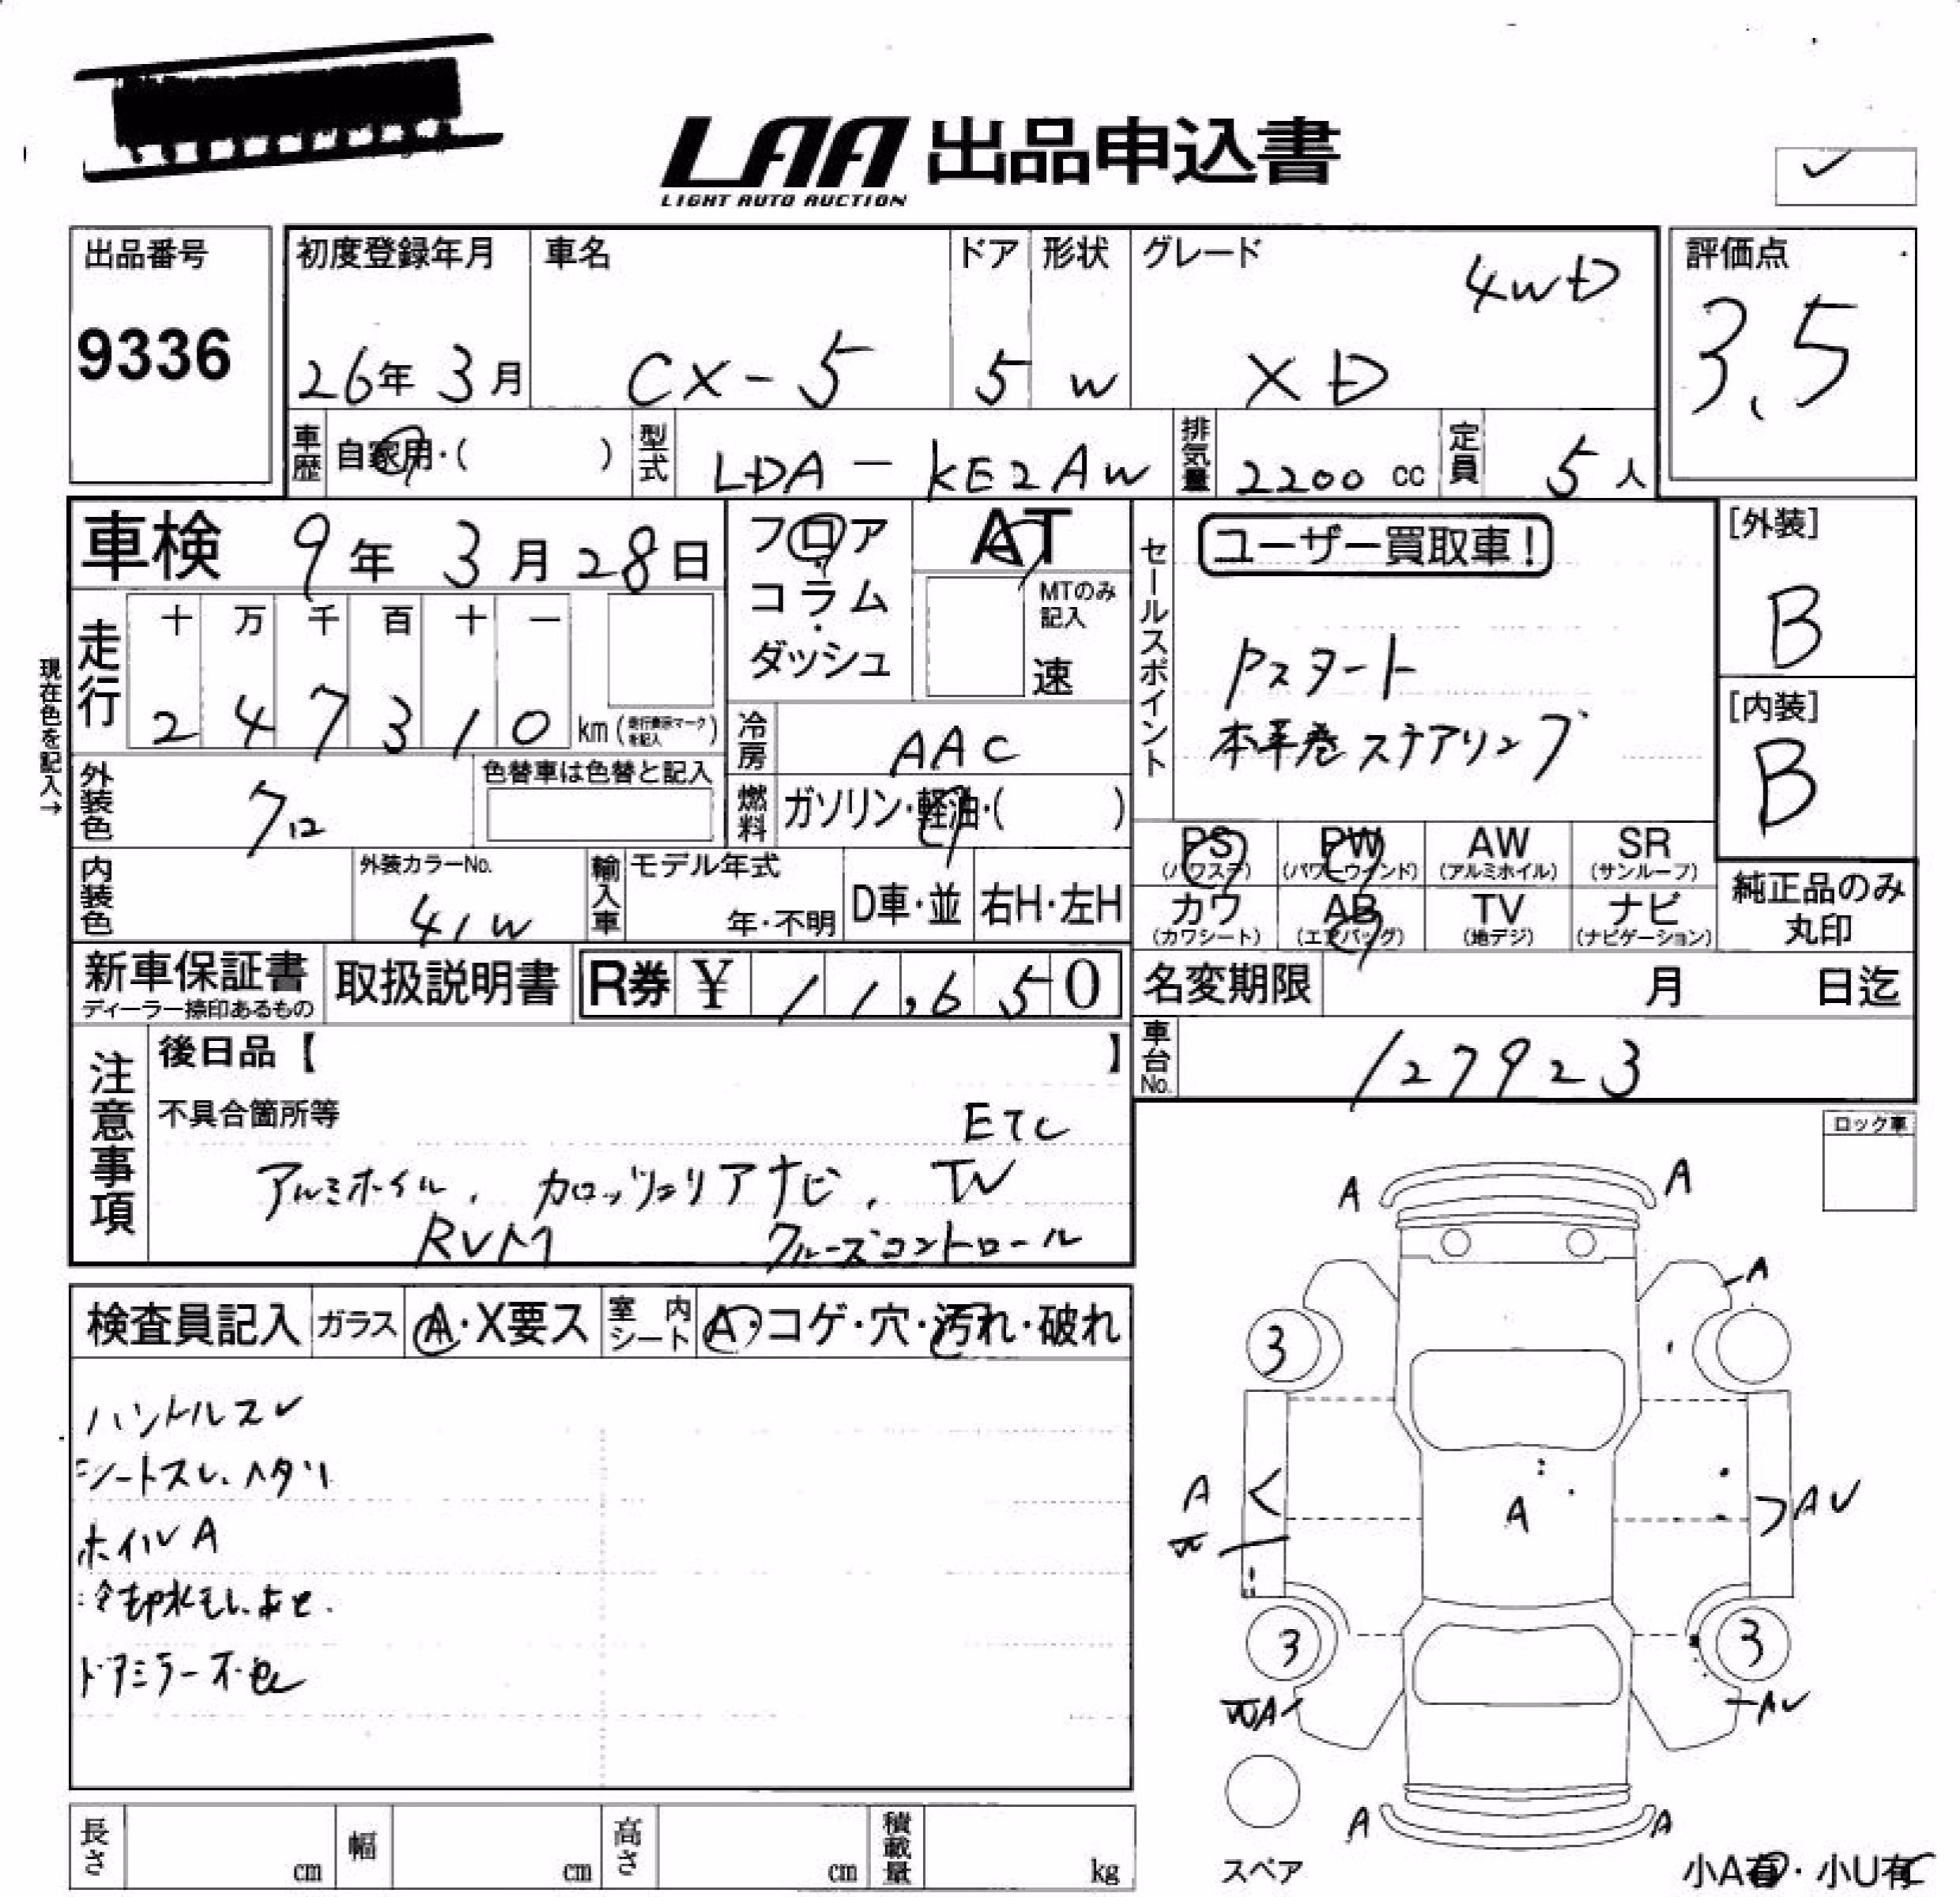 LAA 出品申込書
LIGHT AUTO AUCTION
出品番号
9336
初度登録年月
26年 3月
車名
CX-5
ドア
5
形状
W
グレード
4WD
XD
評価点
3.5
車歴 自家用・( )
型式 LDA-KE2AW
排気量 2200 cc
定員 5人
車検 9年 3月 28日
フロア・コラム・ダッシュ
AT
MTのみ記入
速
セールスポイント
ユーザー買取車!
Pスタート
本革巻ステアリング
[外装]
B
[内装]
B
現在色を記入→
走行
十 万 千 百 十 一
2 4 7 3 1 0 km (走行表示マークを記入)
冷房 AAC
外装色 クロ
色替車は色替と記入
燃料 ガソリン・軽油・( )
PS (パワステ)
PW (パワーウインド)
AW (アルミホイル)
SR (サンルーフ)
カワ (カワシート)
AB (エアバッグ)
TV (地デジ)
ナビ (ナビゲーション)
純正品のみ丸印
内装色
外装カラーNo.
41W
輸入車
モデル年式
年・不明
D車・並
右H・左H
新車保証書
ディーラー捺印あるもの
取扱説明書
R券 ¥ 11,650
名変期限 月 日迄
車台No. 127923
注意事項
後日品【 】
不具合箇所等
ETC
アルミホイル、カロッツェリアナビ、TV
RVM クルーズコントロール
ロック車
検査員記入
ガラス A・X要ス
室内シート A・コゲ・穴・汚れ・破れ
ハンドルスレ
シートスレ、ヘタリ
ホイルA
冷却水もしあと.
ドアミラー不色
A A
A
3
A
A
AU
3 3
A
AU
A A
スペア
長さ cm
幅 cm
高さ cm
積載量 kg
小A有・小U有